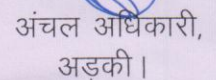 अंचल अधिकारी,
अड़की।